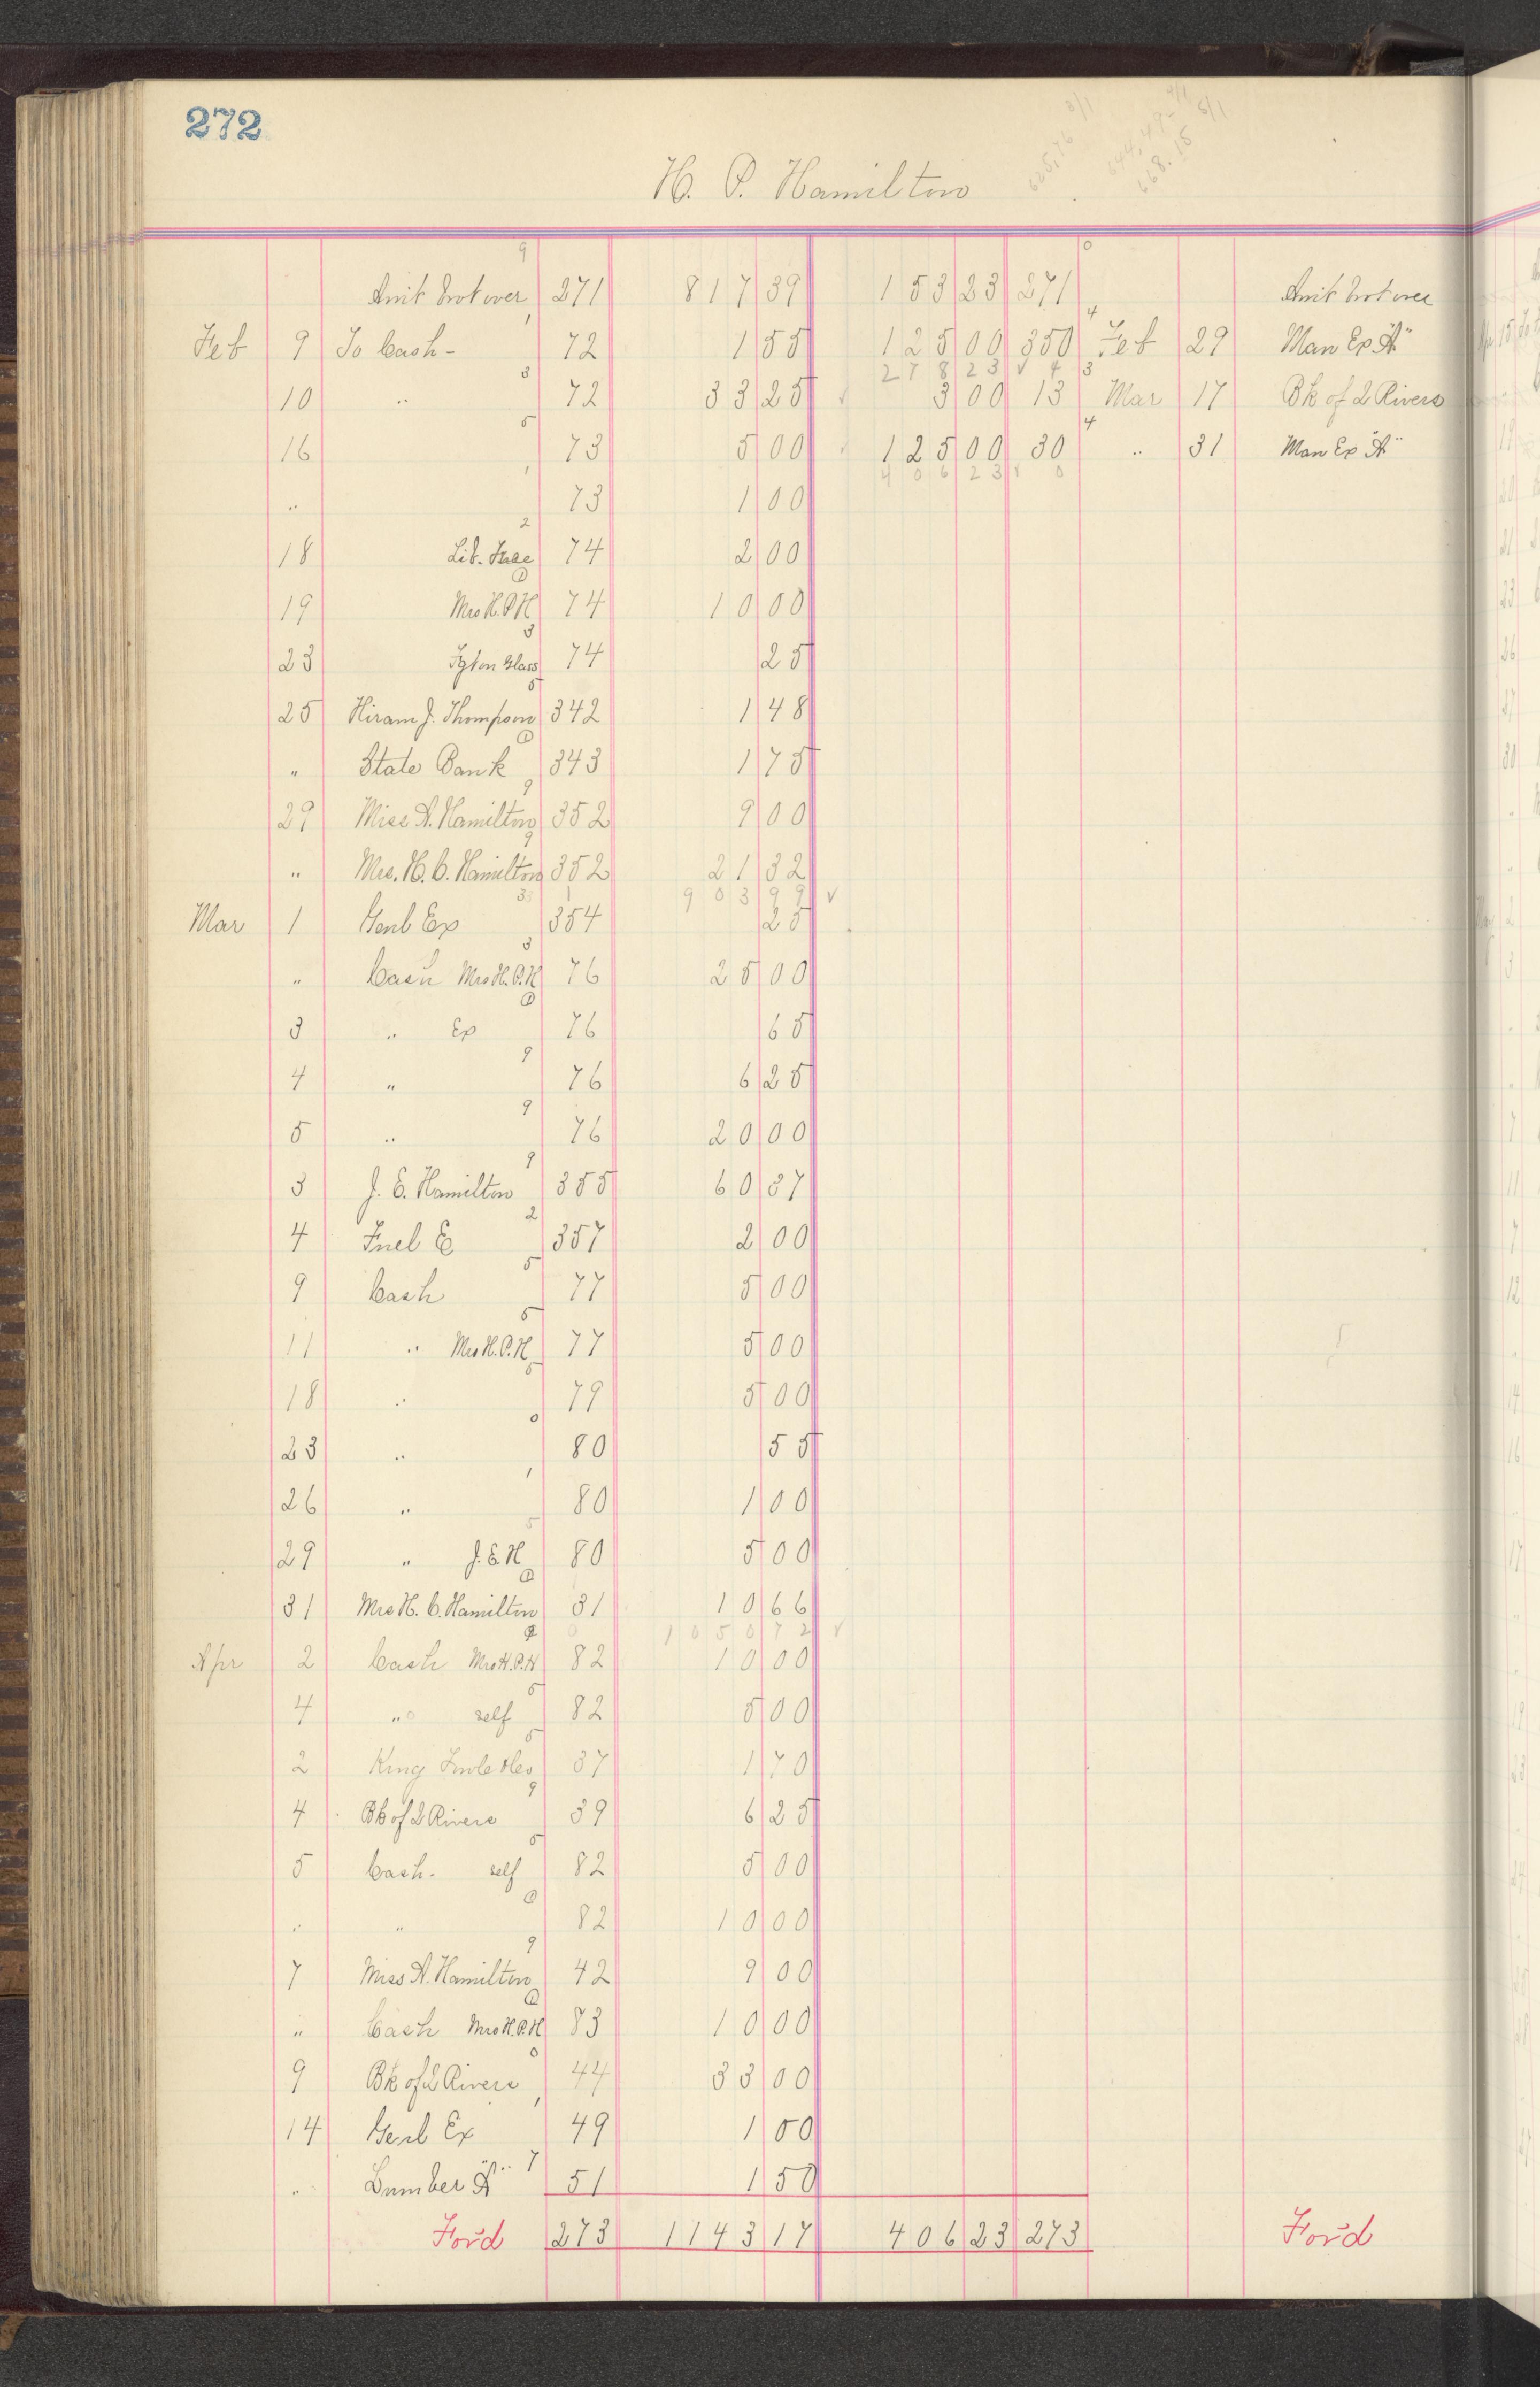 272
625.76 3/1
644.49 4/1
668.15 5/1
H. P. Hamilton
Amt brot over 271 817 39 153 23 271 Amt brot over
Feb 9 To Cash - 72 1 55 125 00 350 Feb 29 Man Ex "A"
278 23 ✓
10 " 72 33 25 ✓ 3 00 13 Mar 17 Bk of 2 Rivers
16 73 5 00 125 00 30 " 31 Man Ex "A"
406 23 ✓
" 73 1 00
18 74 2 00
19 Mrs H.P.H 74 10 00
23 Glass 74 25
25 Hiram J. Thompson 342 1 48
" State Bank 343 1 75
29 Miss A. Hamilton 352 9 00
" Mrs. H. C. Hamilton 352 21 32
903 99 ✓
Mar 1 Genl Ex 354 25
" Cash Mrs H.P.H 76 25 00
3 " Ex 76 65
4 " 76 6 25
5 " 76 20 00
3 J. E. Hamilton 355 60 37
4 Fuel 357 2 00
9 Cash 77 5 00
11 " Mrs H.P.H 77 5 00
18 " 79 5 00
23 " 80 55
26 " 80 1 00
29 " J.E.H 80 5 00
31 Mrs H. C. Hamilton 31 10 66
1050 72 ✓
Apr 2 Cash Mrs H.P.H 82 10 00
4 " self 82 5 00
2 King 37 1 70
4 Bk of 2 Rivers 39 6 25
5 Cash - self 82 5 00
" " 82 10 00
7 Miss A. Hamilton 42 9 00
" Cash Mrs H.P.H 83 10 00
9 Bk of 2 Rivers 44 33 00
14 Genl Ex 49 1 00
" Lumber "A" 51 1 50
For'd 273 1143 17 406 23 273 For'd